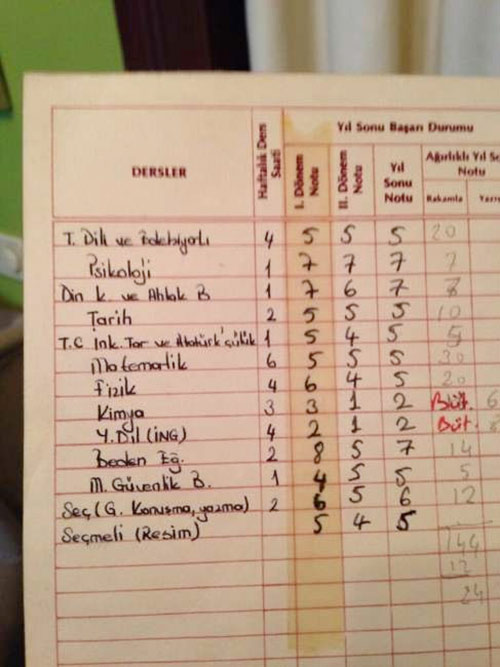 Yıl Sonu Başarı Durumu
DERSLER Haftalık Ders Saati I. Dönem Notu II. Dönem Notu Yıl Sonu Notu Ağırlıklı Yıl Notu
Rakamla
T. Dili ve Edebiyatı 4 5 5 5 20
Psikoloji 1 7 7 7 7
Din k. ve Ahlak B 1 7 6 7 7
Tarih 2 5 5 5 10
T.C İnk. Tar ve Atatürk'çülük 1 5 4 5 5
Matematik 6 5 5 5 30
Fizik 4 6 4 5 20
Kimya 3 3 1 2 Büt. 6
Y. Dil (İNG) 4 2 1 2 Büt. 8
Beden Eğ. 2 8 5 7 14
M. Güvenlik B. 1 4 5 5 5
Seç (G. Konuşma, yazma) 2 6 5 6 12
Seçmeli (Resim) 5 4 5
144
12
24